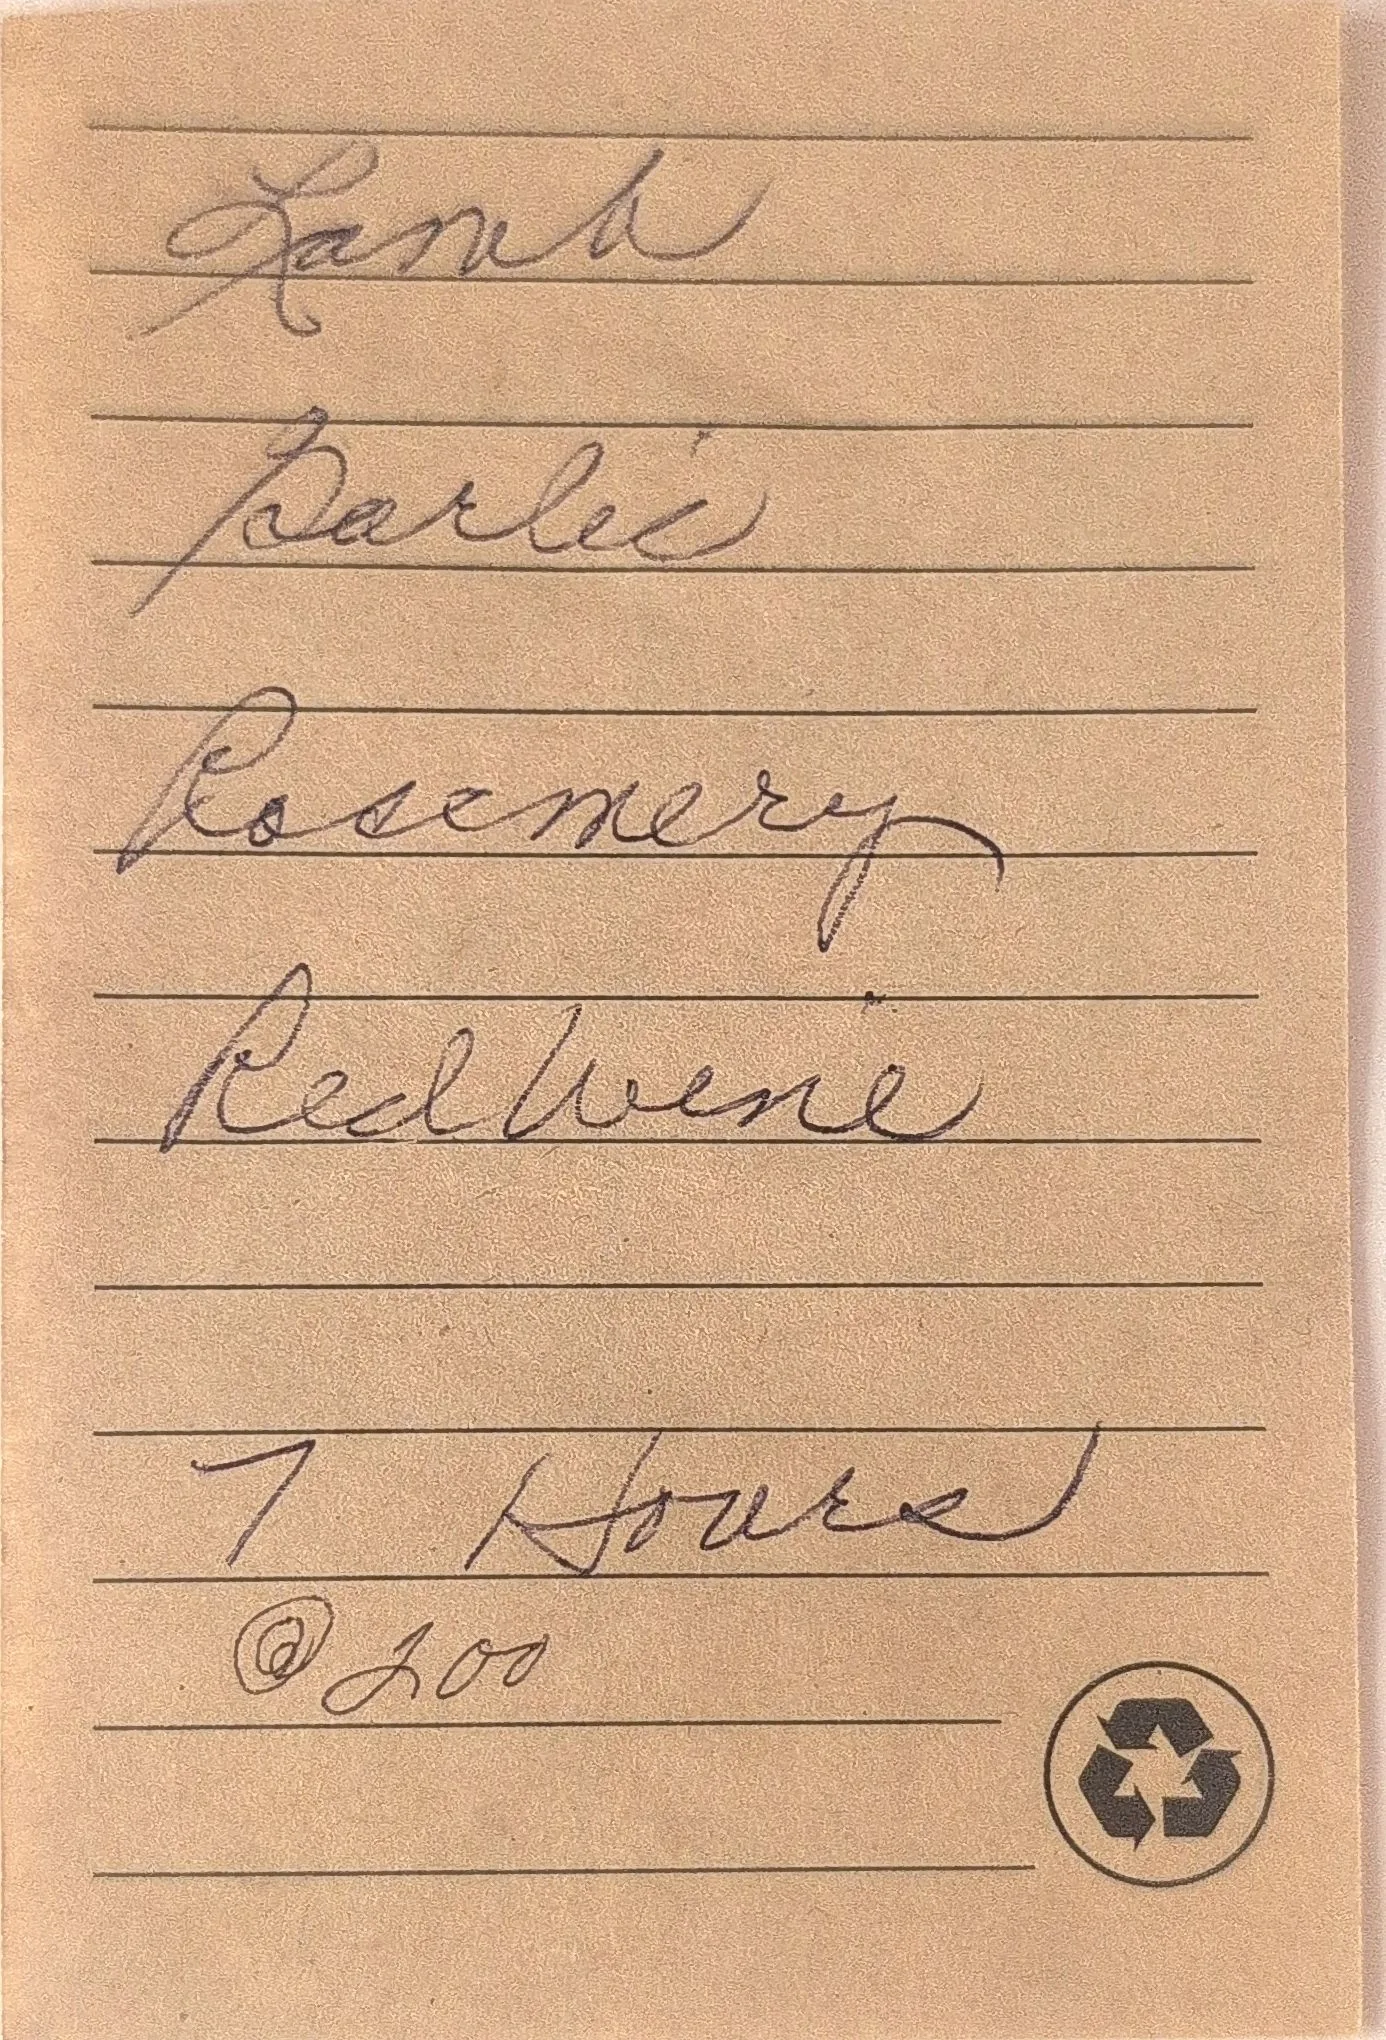 Lamb
Garlic
Rosemery
Red Wine
7 Hours
@ 200